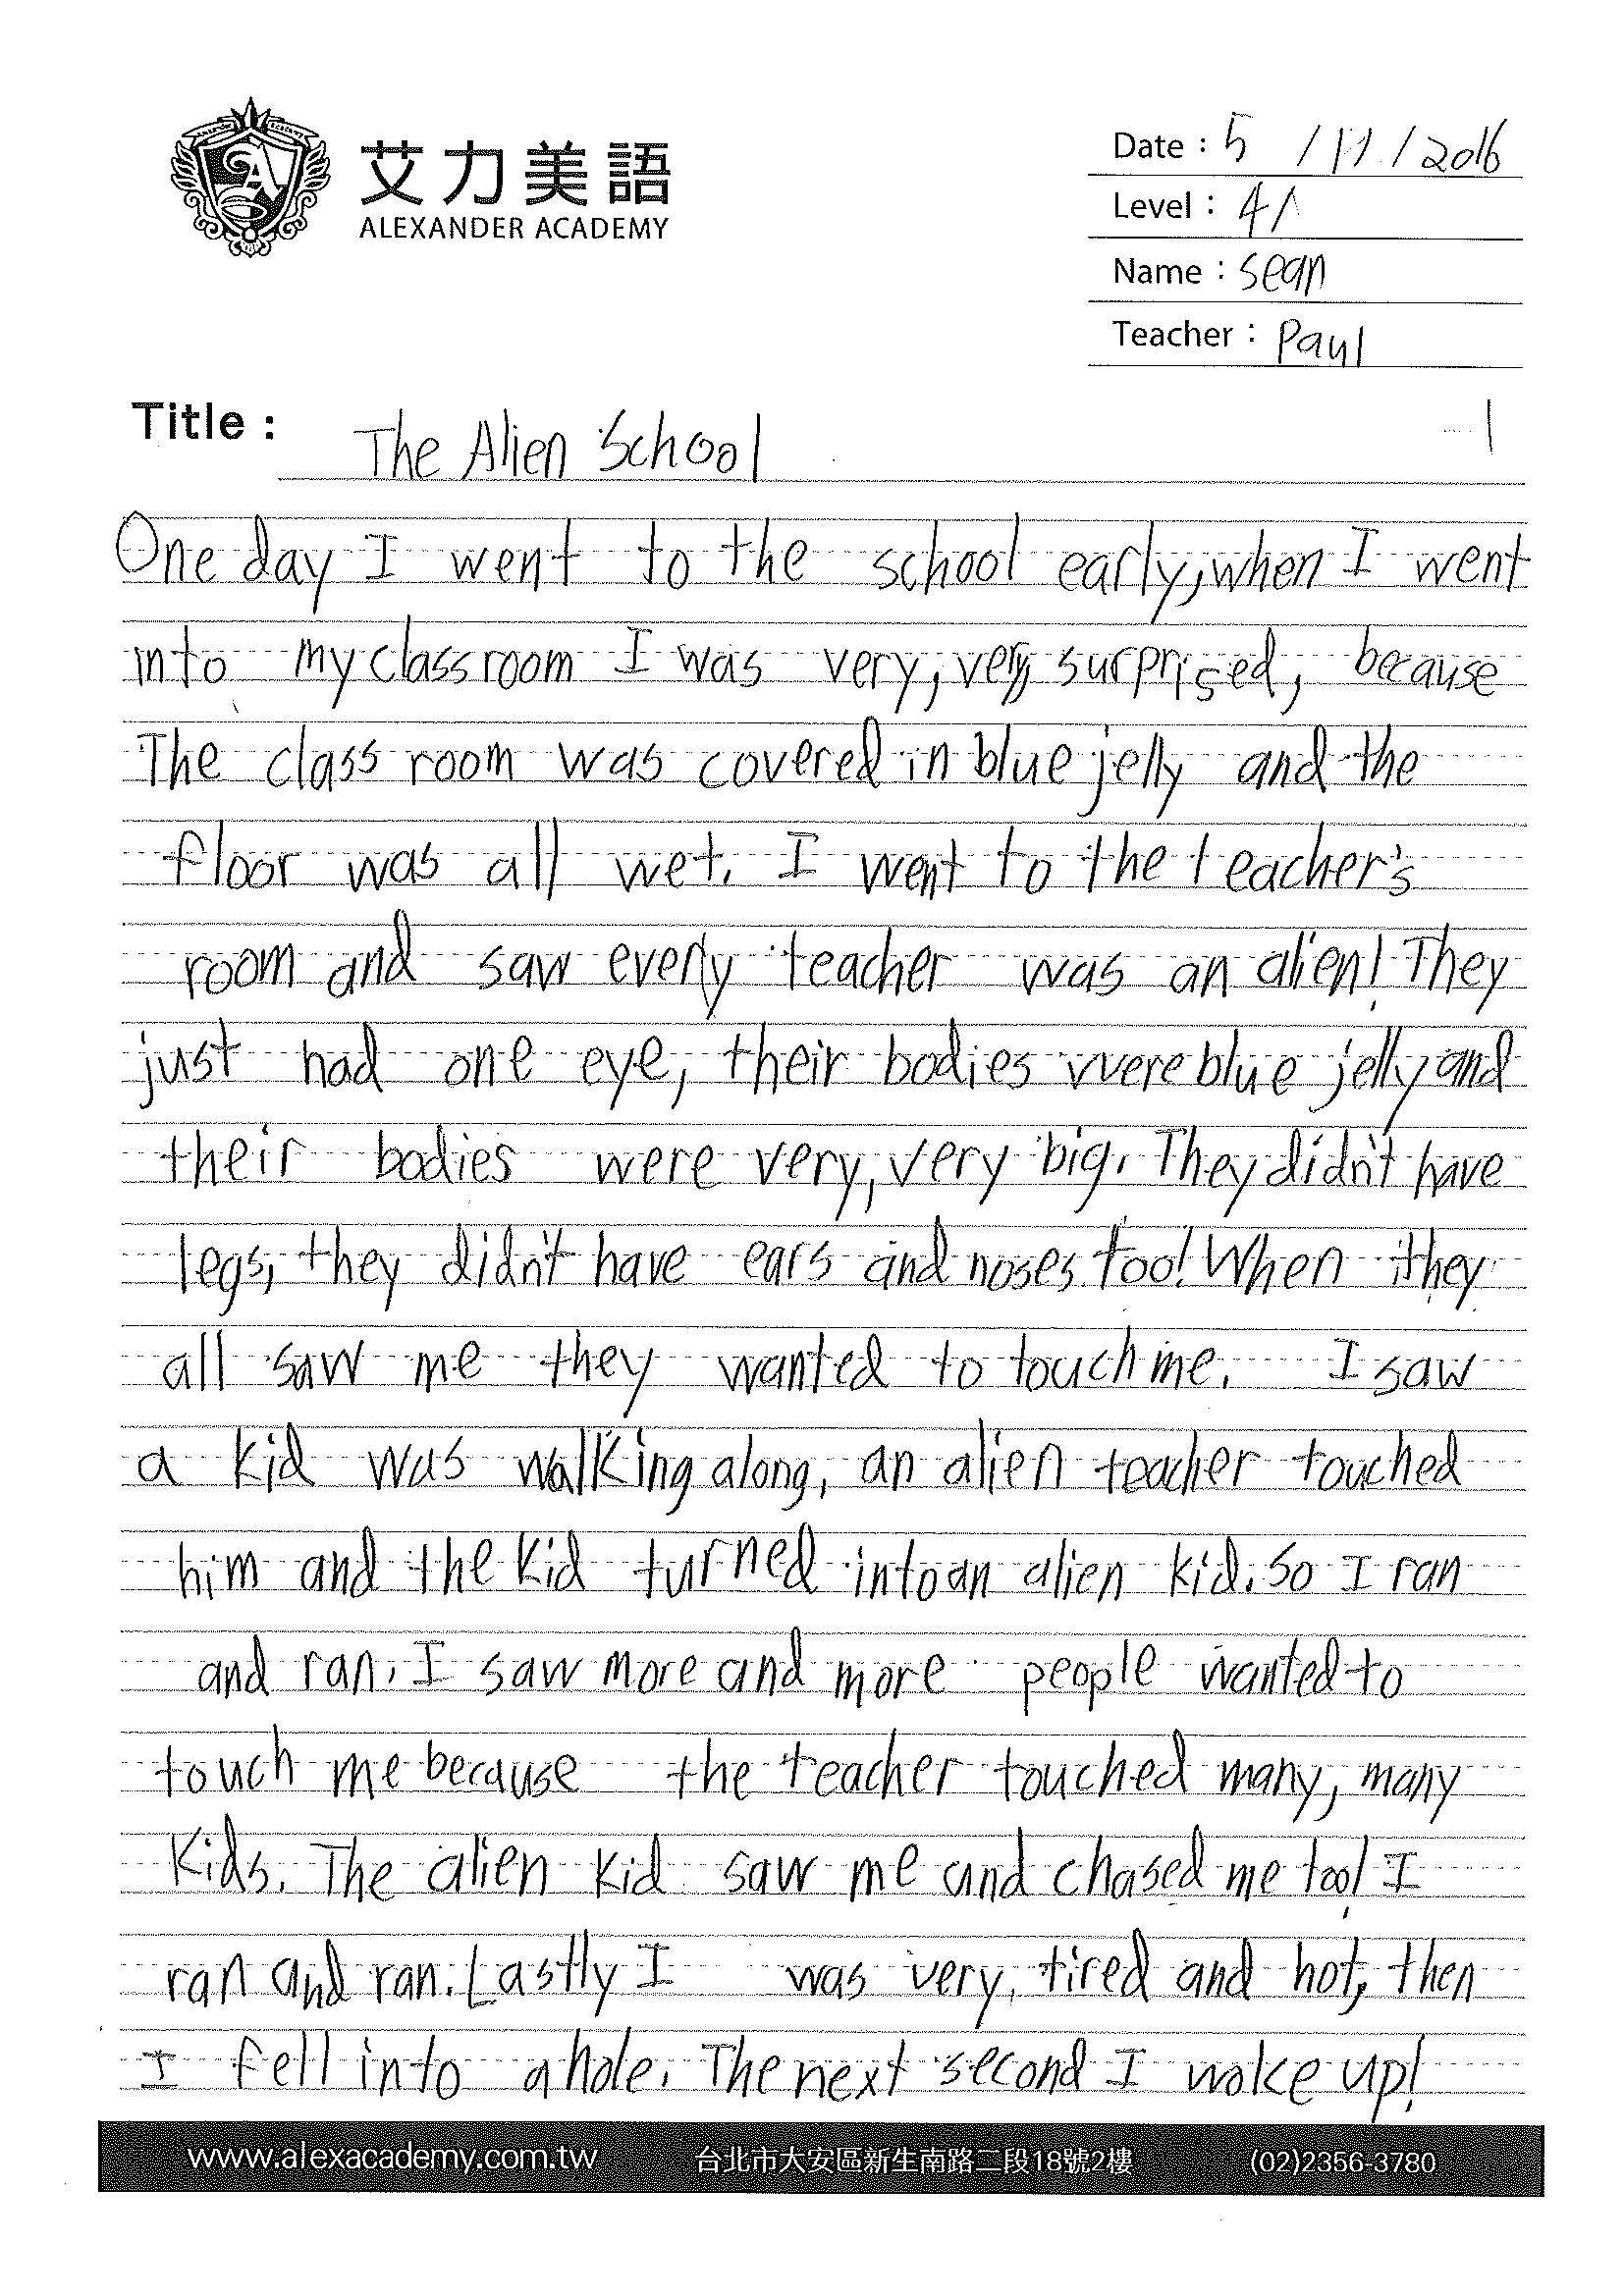 艾力美語
ALEXANDER ACADEMY
Date : 5 / 11 / 2016
Level : 4A
Name : Sean
Teacher : Paul
Title : The Alien School
1
One day I went to the school early, when I went
into my classroom I was very, very surprised, because
The class room was covered in blue jelly and the
floor was all wet. I went to the teacher's
room and saw every teacher was an alien! They
just had one eye, their bodies were blue jelly and
their bodies were very, very big. They didn't have
legs, they didn't have ears and noses too! When they
all saw me they wanted to touch me. I saw
a kid was walking along, an alien teacher touched
him and the kid turned into an alien kid. So I ran
and ran. I saw more and more people wanted to
touch me because the teacher touched many, many
kids. The alien kid saw me and chased me too! I
ran and ran. Lastly I was very, tired and hot, then
I fell into a hole. The next second I woke up!
www.alexacademy.com.tw 台北市大安區新生南路二段18號2樓 (02)2356-3780